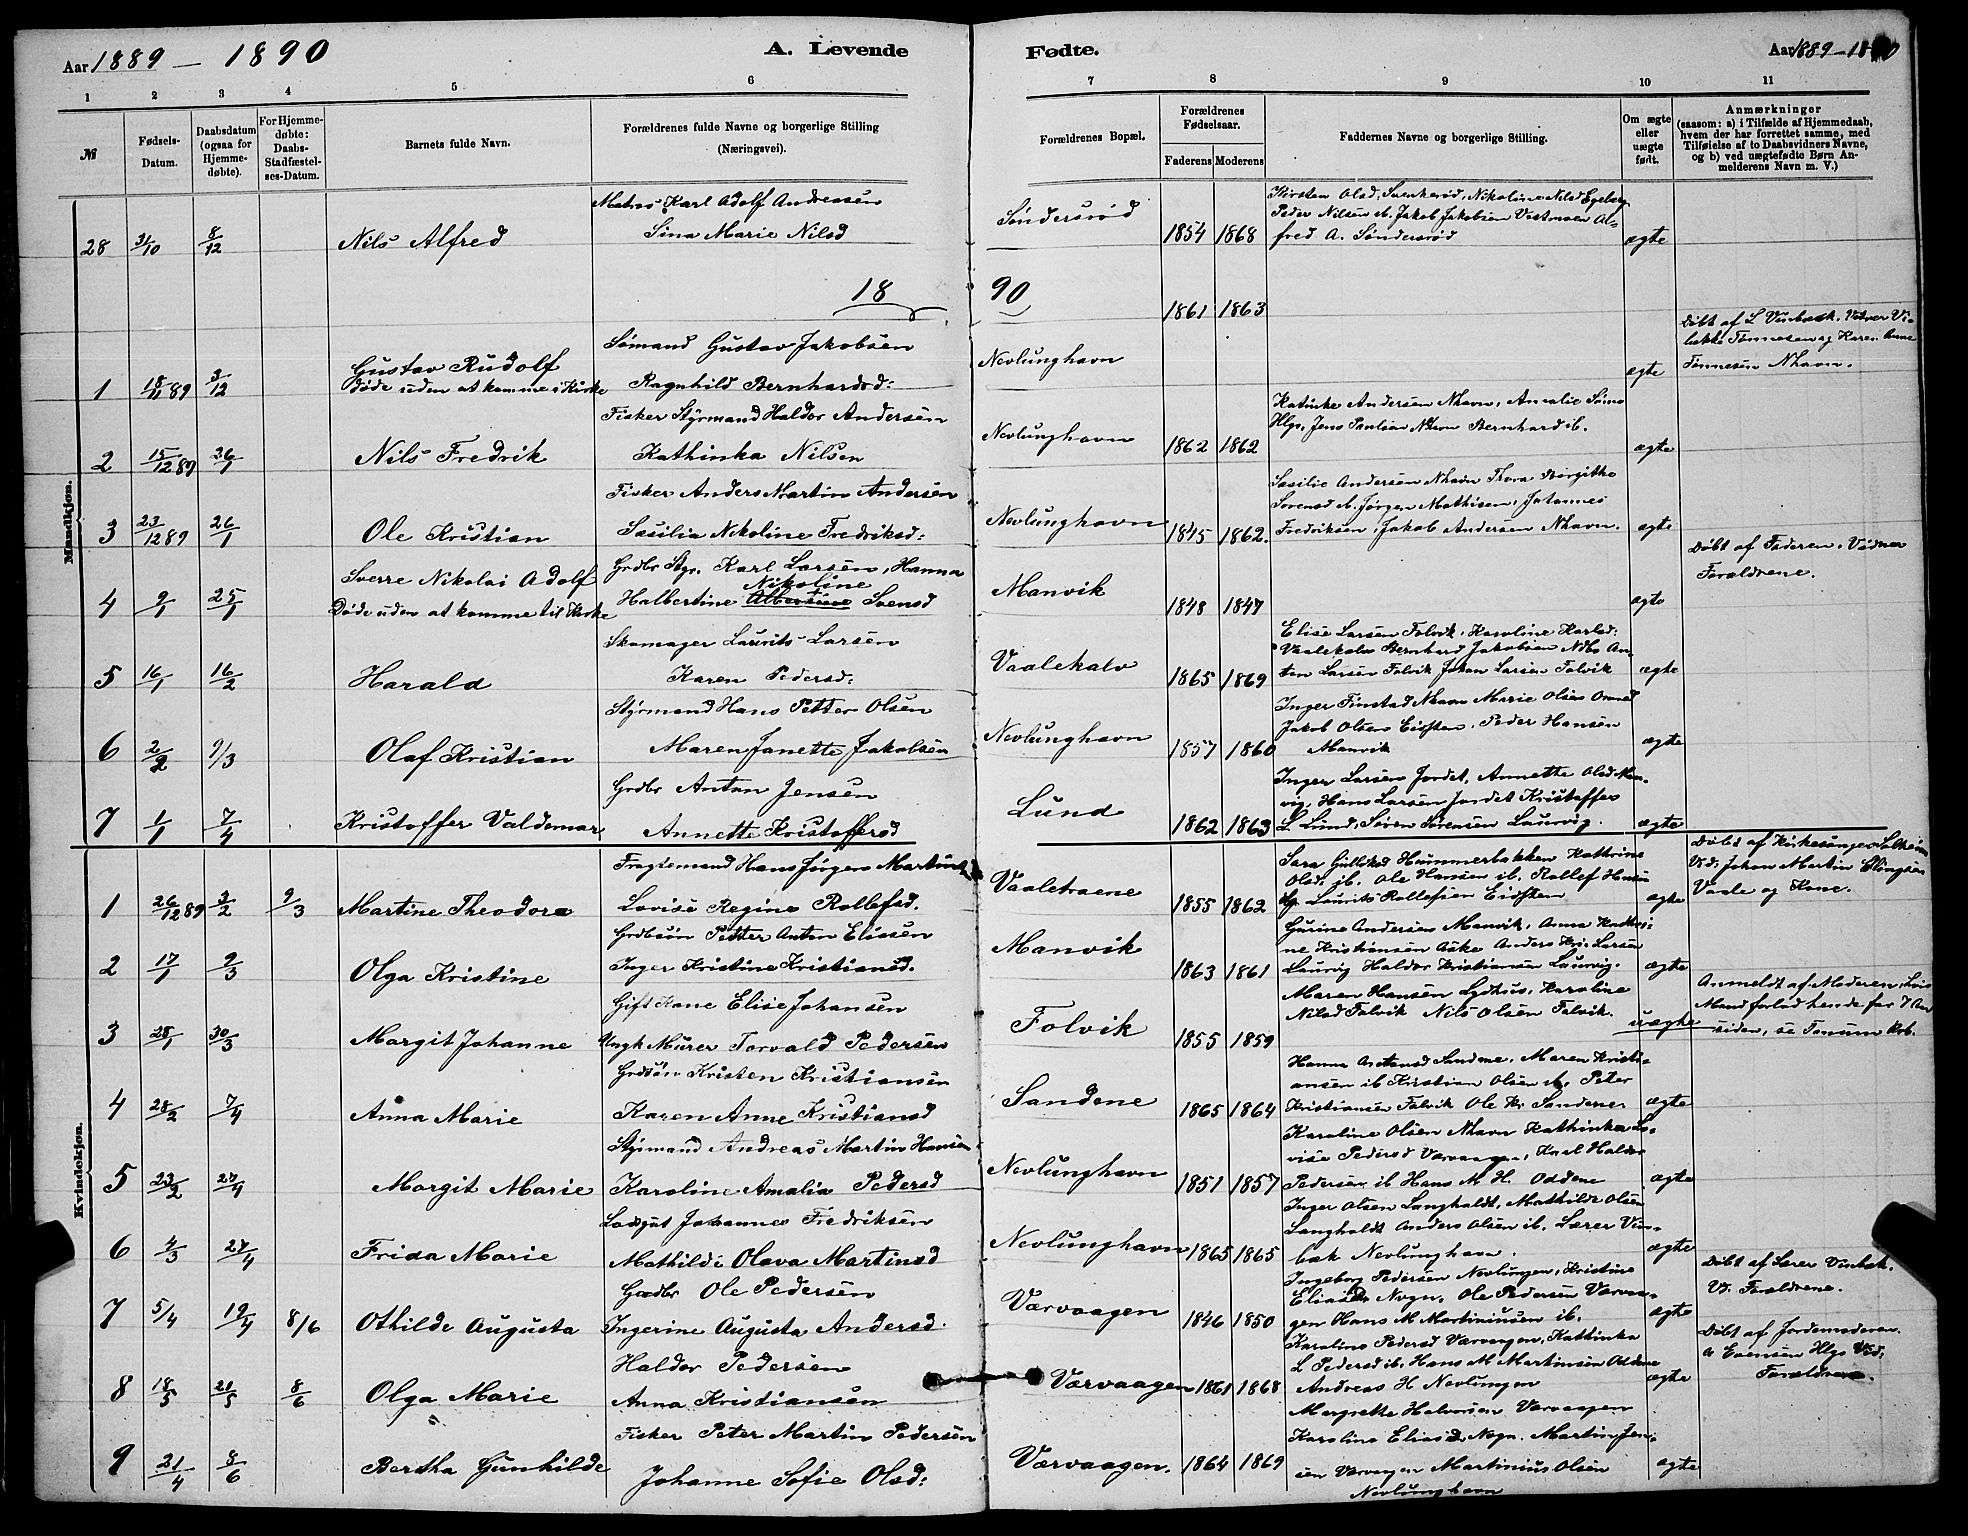 Aar 1889 – 1890
A. Levende
Fødte.
Aar 1889 – 18
1 2 3 4 5 6 7 8 9 10 11
№
Fødsels-Datum.
Daabsdatum (ogsaa for Hjemme-døbte).
For Hjemme-døbte: Daabs-Stadfæstel-ses-Datum.
Barnets fulde Navn.
Forældrenes fulde Navne og borgerlige Stilling (Næringsvei).
Forældrenes Bopæl.
Forældrenes Fødselsaar.
Faderens Moderens
Faddernes Navne og borgerlige Stilling.
Om ægte eller uægte født.
Anmærkninger (saasom: a) i Tilfælde af Hjemmedaab, hvem der har forrettet samme, med Tilføielse af to Daabsvidners Navne, og b) ved uægtefødte Børn Anmelderens Navn m. V.)
Mandkjøn.
Matros Karl Adolf Andreassen
28 31/10 8/12 Nils Alfred Sina Marie Nilsd
Søndersrød 1854 1868 ægte
Kirsten Olsd, Nikoline Nilsd
Peder Nilsen ib. Jakob Jakobsen Vestmoen Al-
fred A. Søndersrød
18 90
1861 1863
Sømand Gustav Jakobsen
1 18/11 89 3/12 Gustav Rudolf Ragnhild Bernhardsd:
Døde uden at komme i Kirke
Nevlunghavn ægte
Døbt af L Vinbæk. Vidner Vi-
Tønnesen og Karen Anne
Tønnesen Nhavn.
Fisker Styrmand Haldor Andersen
2 15/12 89 26/1 Nils Fredrik Kathinka Nilsen
Nevlunghavn 1862 1862 ægte
Katinke Andersen Nhavn, Amalie
Hlgr, Jens Paulsen Nhavn Bernhard ib.
Fisker Anders Martin Andersen
3 23/12 89 26/1 Ole Kristian Sasilia Nikoline Fredriksd:
Nevlunghavn 1845 1862. ægte
Sasilie Andersen Nhavn Thora Birgitha
Sørensd ib. Jørgen Mathisen, Johannes
Fredriksen, Jakob Andersen Nhavn.
Grdbr Styr. Karl Larsen, Hanna
Nikoline
4 9/1 25/1 Sverre Nikolai Adolf Halbertine Albertine Svensd
Døde uden at komme til Kirke
Manvik 1848 1847 ægte
Døbt af Faderen. Vidner
Forældrene.
Skomager Laurits Larsen
5 16/1 16/2 Harald Karen Pedersd:
Vaalekalv 1865 1869 ægte
Elise Larsen Folvik, Karoline Karlsd:
Vaalekalv Bernhard Jakobsen An-
ton Larsen Folvik Johan Larsen Folvik
Styrmand Hans Petter Olsen
6 2/2 9/3 Olaf Kristian Maren Janette Jakobsen
Nevlunghavn 1857 1860 ægte
Inger Finstad Nhavn Marie Olsen
Jakob Olsen Eiesten, Peder Hansen
Manvik
Grdbr Anton Jensen
7 1/1 7/4 Kristoffer Valdemar Annette Kristoffersd
Lund 1862 1863 ægte
Inger Larsen Jordet, Annette Olsd Man-
vig, Hans Larsen Jordet Kristoffer
L Lund, Søren Sørensen Laurvig.
Kvindekjøn.
Hans Jørgen
1 26/12 89 3/2 9/3 Martine Theodora Lovise Regine Rollefsd.
Vaaletraene 1855 1862 ægte
Sara Hummerbakken Kathrine
Olsd. ib. Ole Hansen ib. Rollef Hansen
Laurits Rollefsen Eiesten
Døbt af Kirkesanger
Vid: Johan Martin Ellingsen
Varde og Kone.
Grdbsøn Petter Anton Eliesen
2 17/1 9/3 Olga Kristine Inger Kristine Kristiansd.
Manvik 1863 1861 ægte
Gurine Andersen Manvik, Anna Kathri-
ne Kristiansen Aske Anders Kr. Larsen
Laurvig Haldor Kristiansen Laurvig.
Gift Kone Elise Johansen
3 28/1 30/3 Margit Johanne Ungk Murer Torvald Pedersen
Folvik 1855 1859 uægte
Maren Hansen Lydhus, Karoline
Nilsd Folvik Nils Olsen Folvik.
Anmeldt af Moderen, hvis
Mand forlod hende for 7 Aar
siden, se
Grdsøn Kristen Kristiansen
4 28/2 7/4 Anna Marie Karen Anne Kristiansd
Sandene 1865 1864 ægte
Hanna Antonsd Sandene, Maren Kristi-
ansen ib Kristian Olsen ib. Peter
Kristiansen Folvik Ole Kr. Sandene
Styrmand Andreas Martin Hansen
5 23/2 27/4 Margit Marie Karoline Amalia Pedersd
Nevlunghavn 1851 1857 ægte
Karoline Olsen Nhavn Kathinka Lo-
vise Pedersd Værvaagen, Karl Haldor
Pedersen ib Hans M. H. Oddene
Lodsgut Johannes Fredriksen
6 4/3 27/4 Frida Marie Mathilde Olava Martinsd
Nevlunghavn 1865 1865 ægte
Inger Olsen Langholdt, Mathilde Olsen
Langholdt Anders Olsen ib. Lærer Vin-
bæk Nevlunghavn.
Grdbr Ole Pedersen
7 5/4 19/4 8/6 Othilde Augusta Ingerine Augusta Andersd.
Værvaagen 1846 1850 ægte
Ingeborg Pedersen Nevlungen, Kristine
Eliasd Nvgn. Ole Pedersen Værvaa-
gen Hans M Martiniussen ib.
Døbt af Lærer Vinbæk.
V. Forældrene.
Haldor Pedersen
8 18/5 21/5 8/6 Olga Marie Anna Kristiansen
Værvaagen 1861 1868 ægte
Karoline Pedersd Værvaagen, Kathinka
L Pedersd ib. Hans M Martinsen Oddene
Andreas H Nevlungen
Døbt af Jordemoderen
Evensen Hlgr Vid:
Forældrene.
Fisker Peter Martin Pedersen
9 21/4 8/6 Bertha Gunhilde Johanne Sofie Olsd:
Værvaagen. 1864 1869 ægte
Margrethe Halvorsen Værvaagen
Karoline Eliasd Nvgn. Martin Jen-
sen Værvagen Martinius Olsen
Nevlunghavn